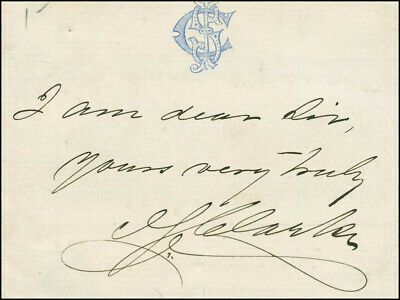 I am dear Sir,
Yours very truly
Clarke